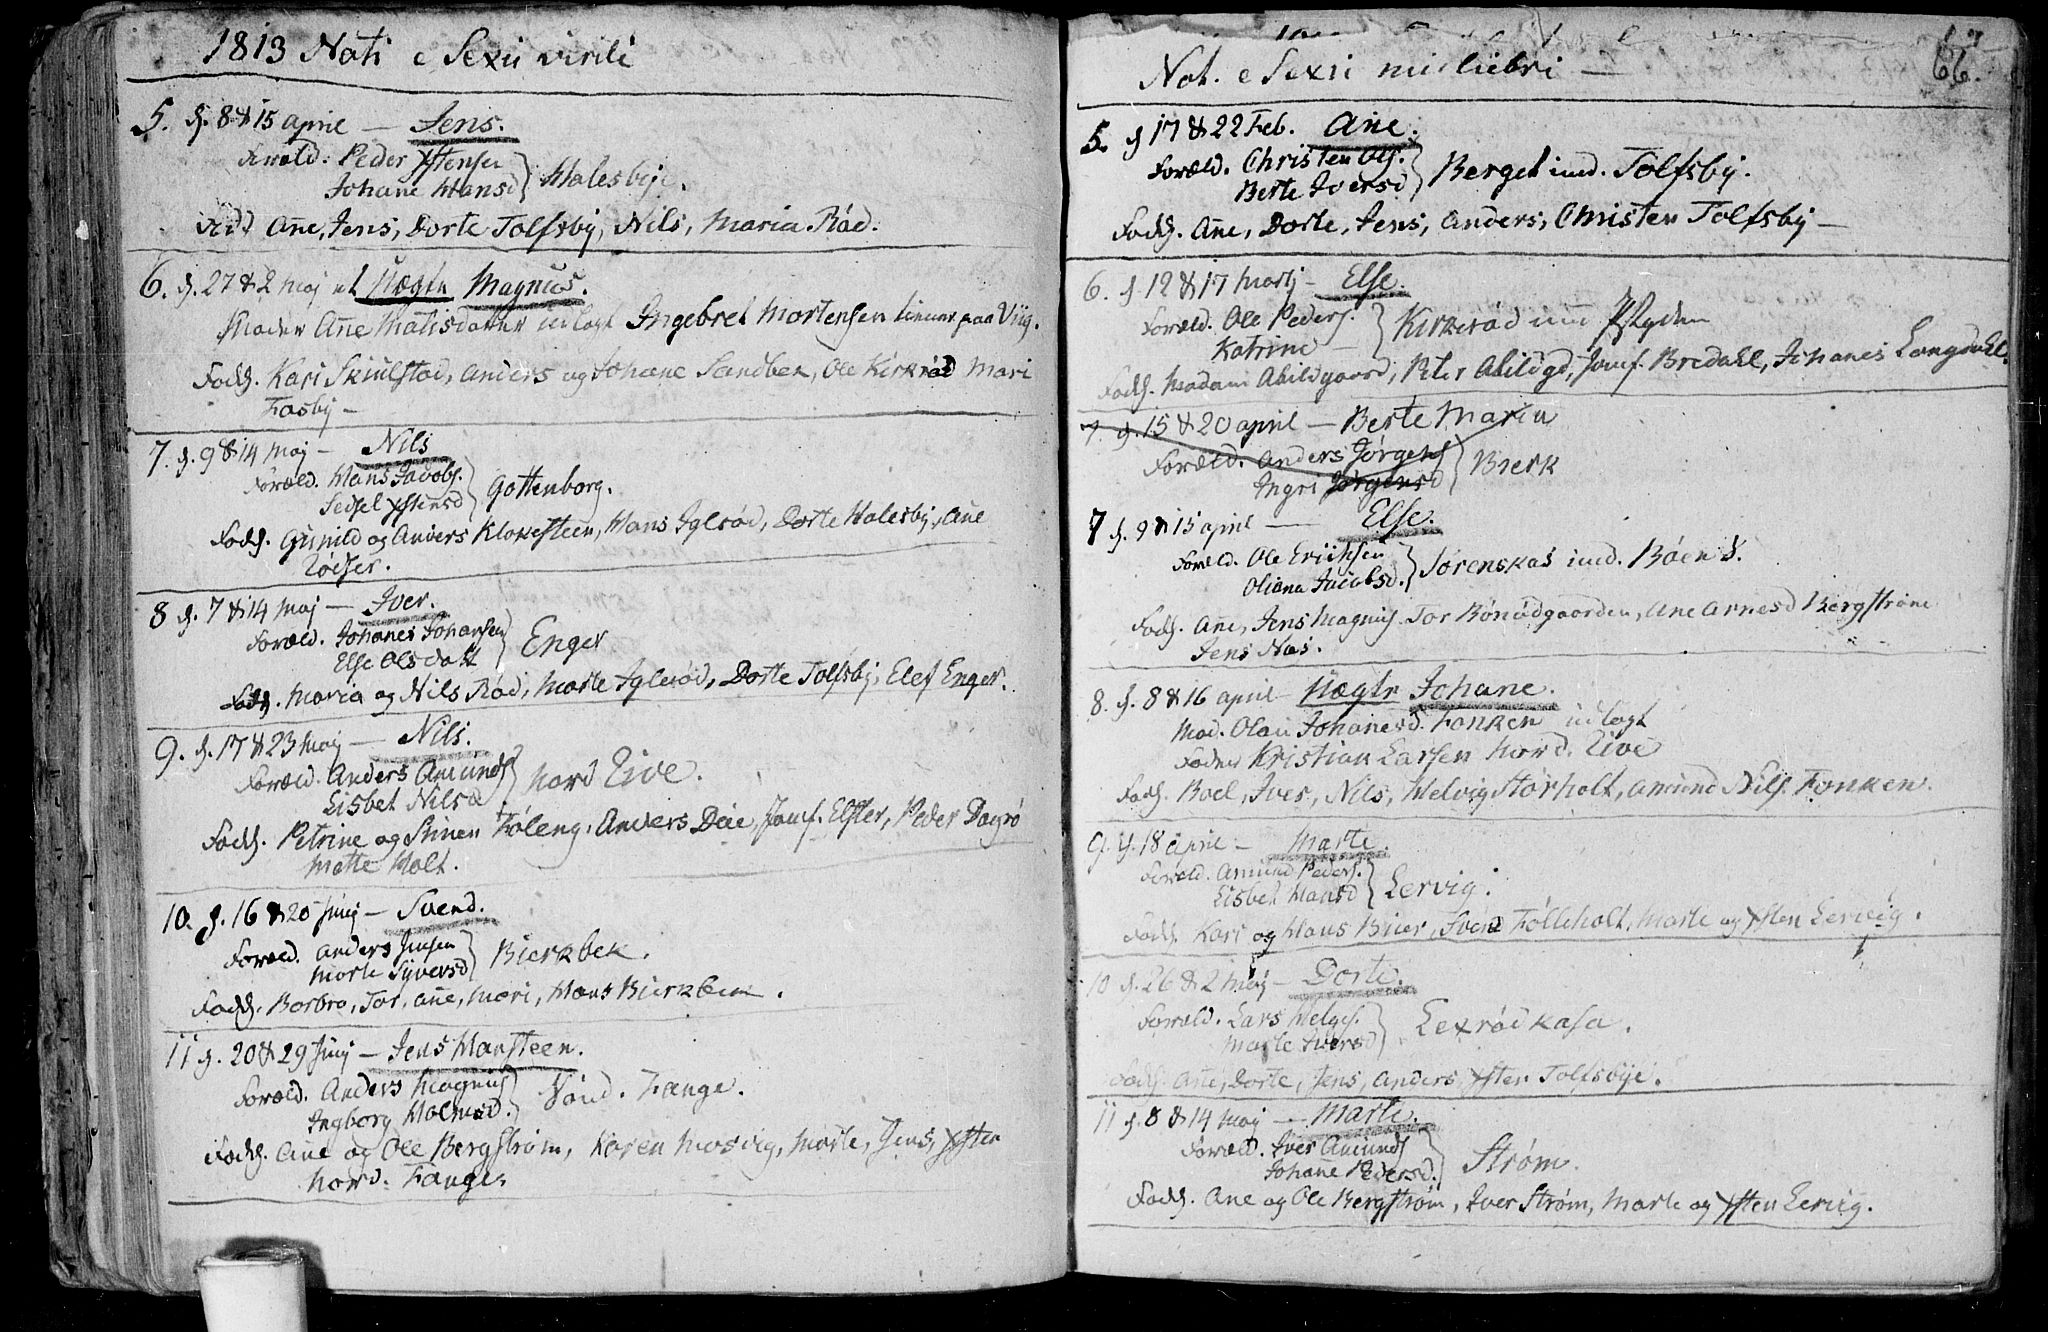 1813 Nati e Sexu virili
5. f. 8 & 15 april — Jens.
Foræld: Peder Xstensen
Johane Hansd } Halesbye.
Fad Ane, Jens, Dorte Tolfsby, Nils, Maria Rød.
6. f. 27 & 2 Maj et Uægte Magnus.
Moder Ane Matisdatter udlagt Ingebret Mortensen tienner paa Viig.
Fadd. Kari Skiulstad, Anders og Johane Sandbek, Ole Kirkrød Mari
Fosby —
7. f. 9 & 14 Maj — Nils
Foræld. Hans Jacobs.
Sidsel Xstensd } Gottenborg.
Fadd. Gunild og Anders Klokesteen, Hans Iglrød, Dorte Halesby, Ane
Röiser.
8 f. 7 & 14 Maj — Iver.
Foræld. Johanes Johansen
Else Olsdatt } Enger
Fadd. Maria og Nils Rød, Marte Iglerød, Dorte Tolfsby, Elef Enger.
9. f. 17 & 23 Maj — Nils.
Foræld. Anders Amunds
Lisbet Nilsd } Nord Live.
Fadd. Petrine og Stinen Føleng, Anders Deie, Jomf. Elster, Peder Dagrø
Mette Holt.
10. f. 16 & 20 Junj — Svend.
Foræld. Anders Jensen
Marte Syversd } Bierkbek.
Fadd. Borbro, Tor, Ane, Mari, Hans Bierkbek.
11 f. 20 & 29 Junj — Jens Hansteen.
Foræld. Anders Magnus
Ingborg Holmsd. } Sønd. Fange.
Fadd. Ane og Ole Bergstrøm, Karen Mosvig, Marte, Jens, Xsten
Nord. Fange.
Nat. e Sexu muliebri —
66.
5. f 17 & 22 Feb. Ane.
Foræld. Christen Ols.
Berte Iversd } Berget und. Tolfsby.
Fadd. Ane, Dorte, Jens, Anders, Christen Tolfsby —
6. f. 12 & 17 Martj — Else.
Foræld. Ole Peders.
Katrine — } Kirkerød und
Fadd. Madam Abildgaard, Peter Abildgd, Jomf. Bredahl, Johanes Langdahl.
7. f. 15 & 20 april — Berte Maria
Foræld. Anders Jørgens
Ingri Jørgensd } Bierk
7 f. 9 & 15 april — Else.
Foræld. Ole Eriksen
Oliana Jacobsd. } Sorenskas und. Böen S.
Fadd. Ane, Jens Magnus. Tor Bönödgaarden, Ane Arnesd Bergstrøm
Jens Nas.
8. f. 8 & 16 april — Uægte Johane.
Mod. Olau Johanesd. Fonken udlagt
Fader Kristian Larsen Nord. Live
Fadd. Boel, Iver, Nils, Helvig Storholt, Amund Nils. Fonken.
9. f. 18 april — Marte.
Foræld. Amund Peders.
Lisbet Hansd } Lervig.
Fadd. Kari og Hans Buer, Svend Følleholt, Marte og Xsten Lervig.
10 f. 26 & 2 Maj — Dorte.
Foræld. Lars Helges.
Marte Iversd } Lexrødkasa.
Fadd. Ane, Dorte, Jens, Anders, Xsten Tolfsbye.
11 f. 8 & 14 Maj — Marte.
Foræld. Iver Amunds
Johane Pedersd. } Strøm.
Fadd. Ane og Ole Bergstrøm, Iver Strøm, Marte og Xsten Lervig.